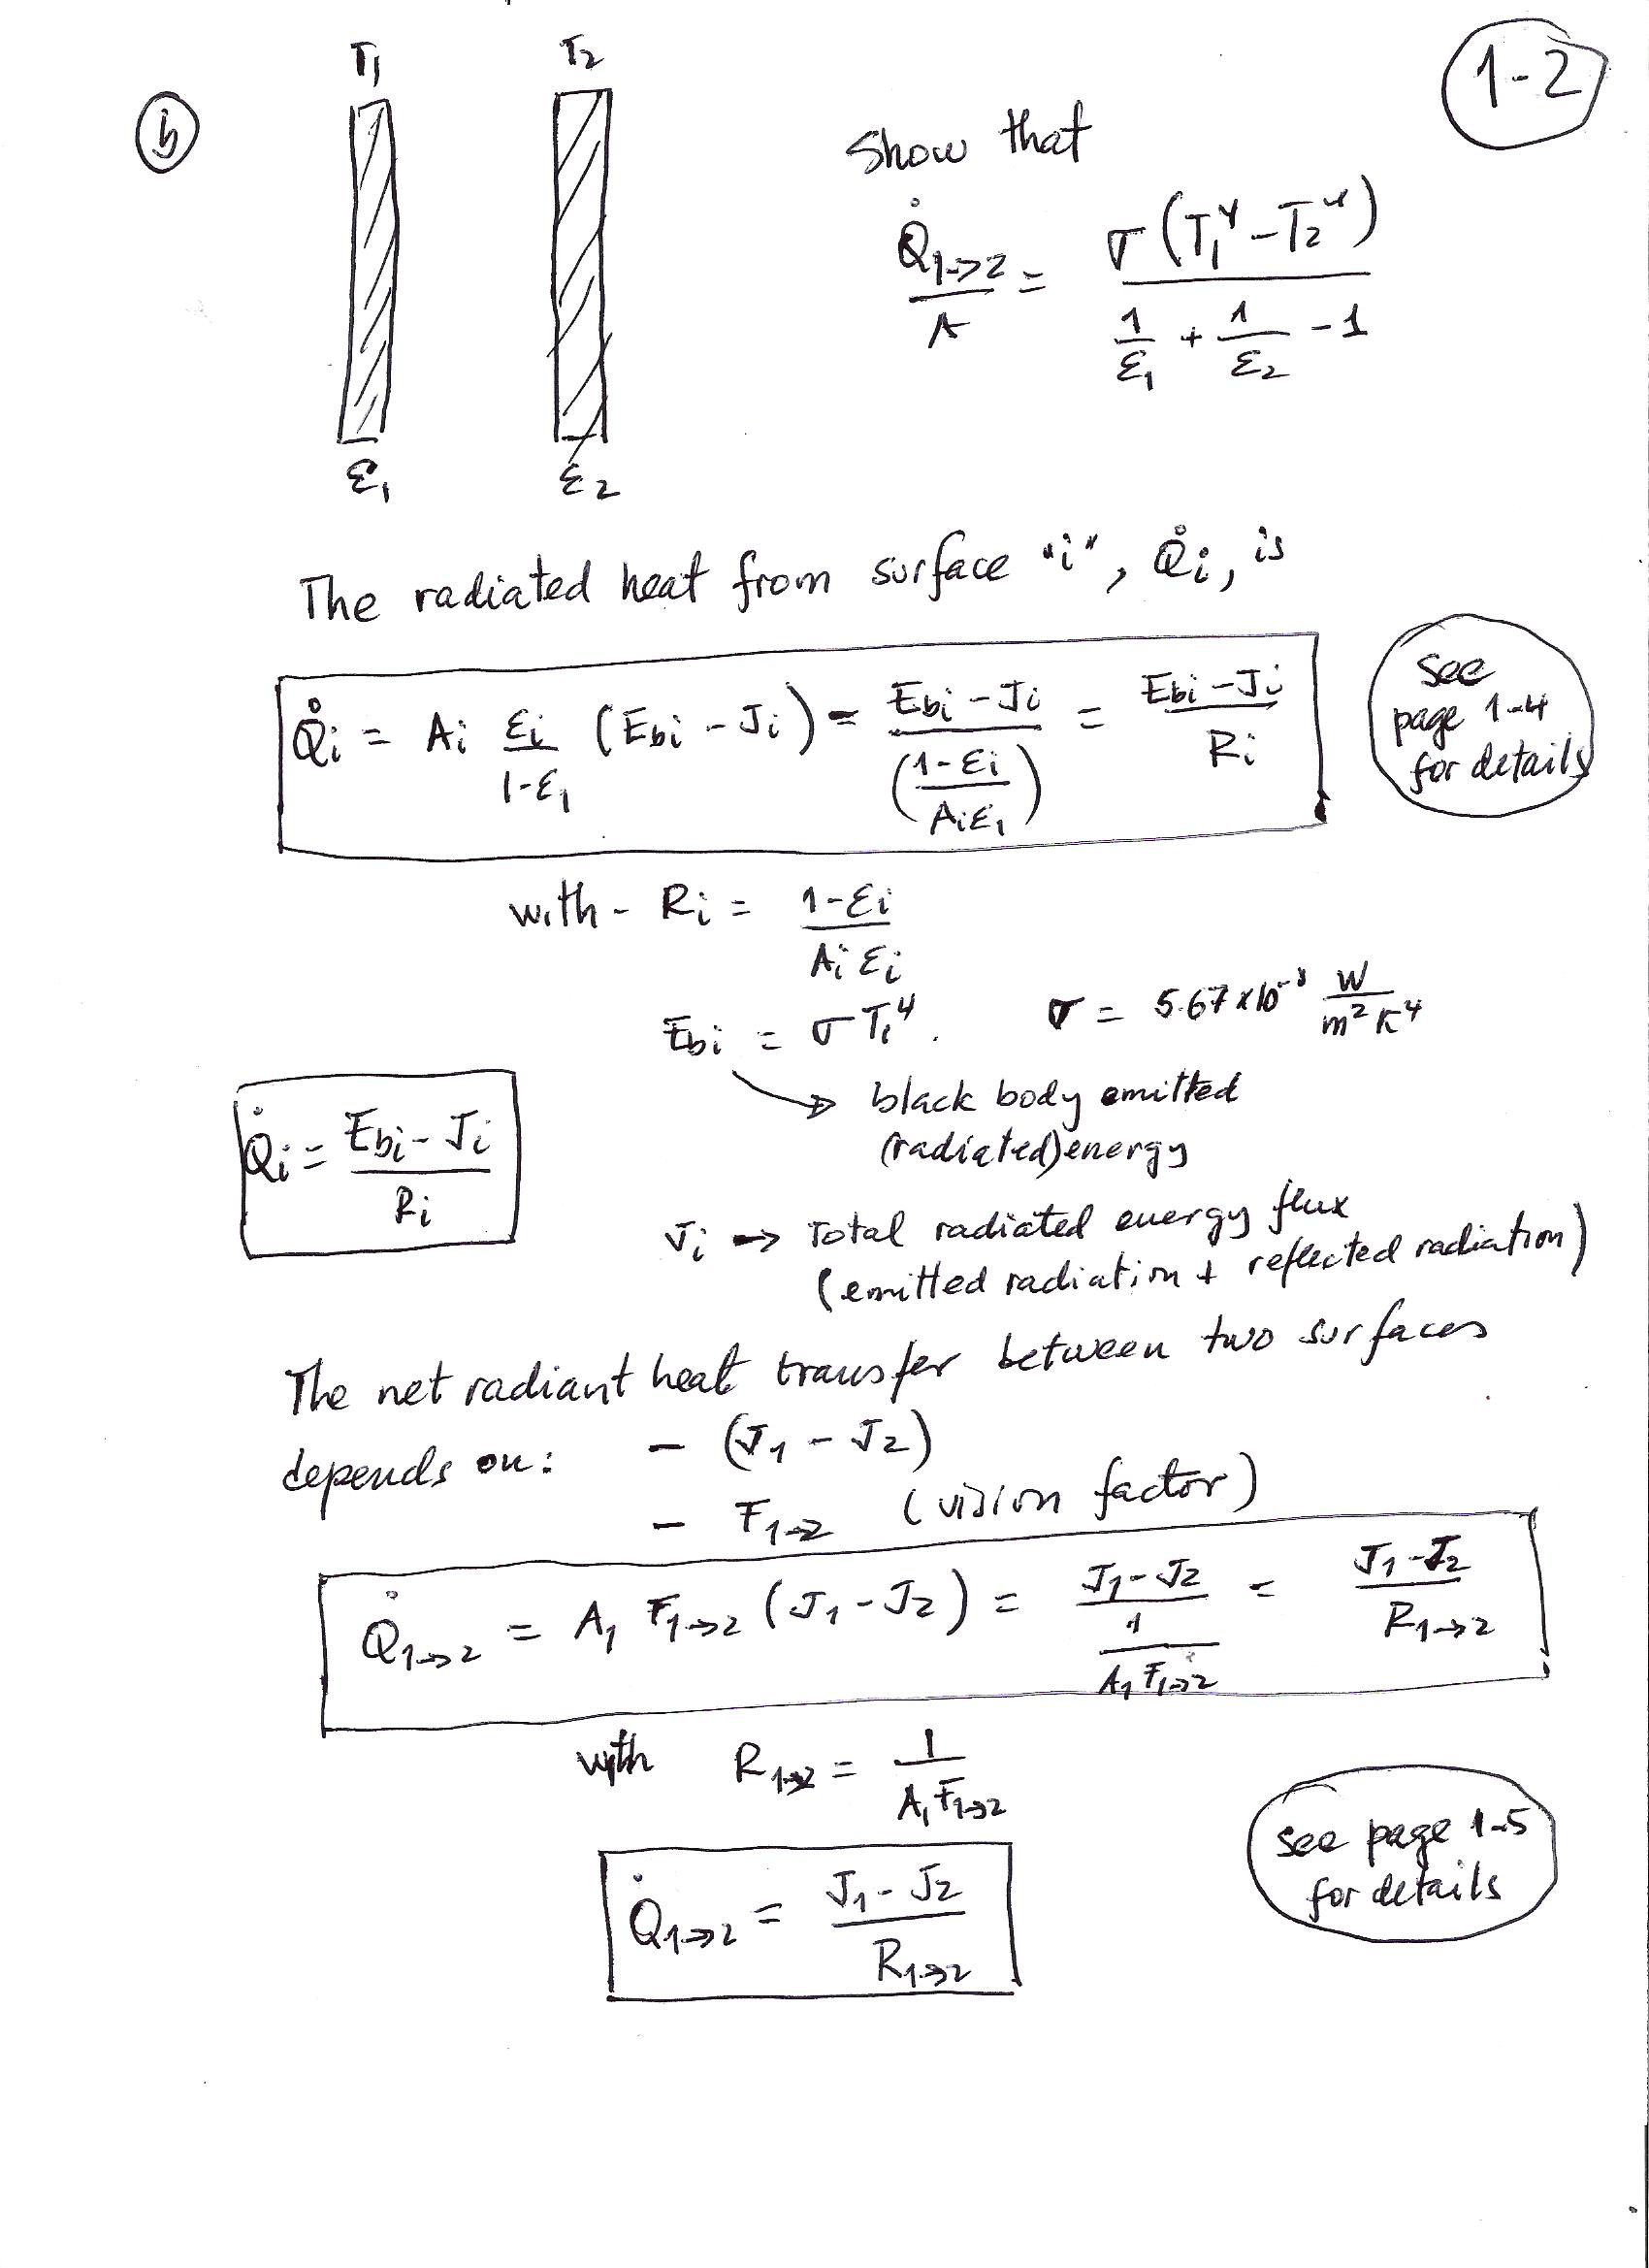 1-2
b
T₁ T₂
Show that
Q̇₁→₂/A = σ(T₁⁴ - T₂⁴) / (1/ε₁ + 1/ε₂ - 1)
ε₁ ε₂
The radiated heat from surface "i", Q̇i, is
Q̇i = Ai εi/(1-ε₁) (Ebi - Ji) = (Ebi - Ji)/((1-εi)/(Aiε₁)) = (Ebi - Ji)/Ri
see
page 1-4
for details
with - Ri = (1-εi)/(Ai εi)
Ebi = σTi⁴. σ = 5.67x10⁻⁸ W/(m² K⁴)
→ black body emitted
(radiated) energy
Q̇i = (Ebi - Ji)/Ri
Ji → Total radiated energy flux
(emitted radiation + reflected radiation)
The net radiant heat transfer between two surfaces
depends on: - (J₁ - J₂)
- F₁→₂ (vision factor)
Q̇₁→₂ = A₁ F₁→₂ (J₁ - J₂) = (J₁ - J₂)/(1/(A₁ F₁→₂)) = (J₁ - J₂)/R₁→₂
with R₁→₂ = 1/(A₁ F₁→₂)
see page 1-5
for details
Q̇₁→₂ = (J₁ - J₂)/R₁→₂